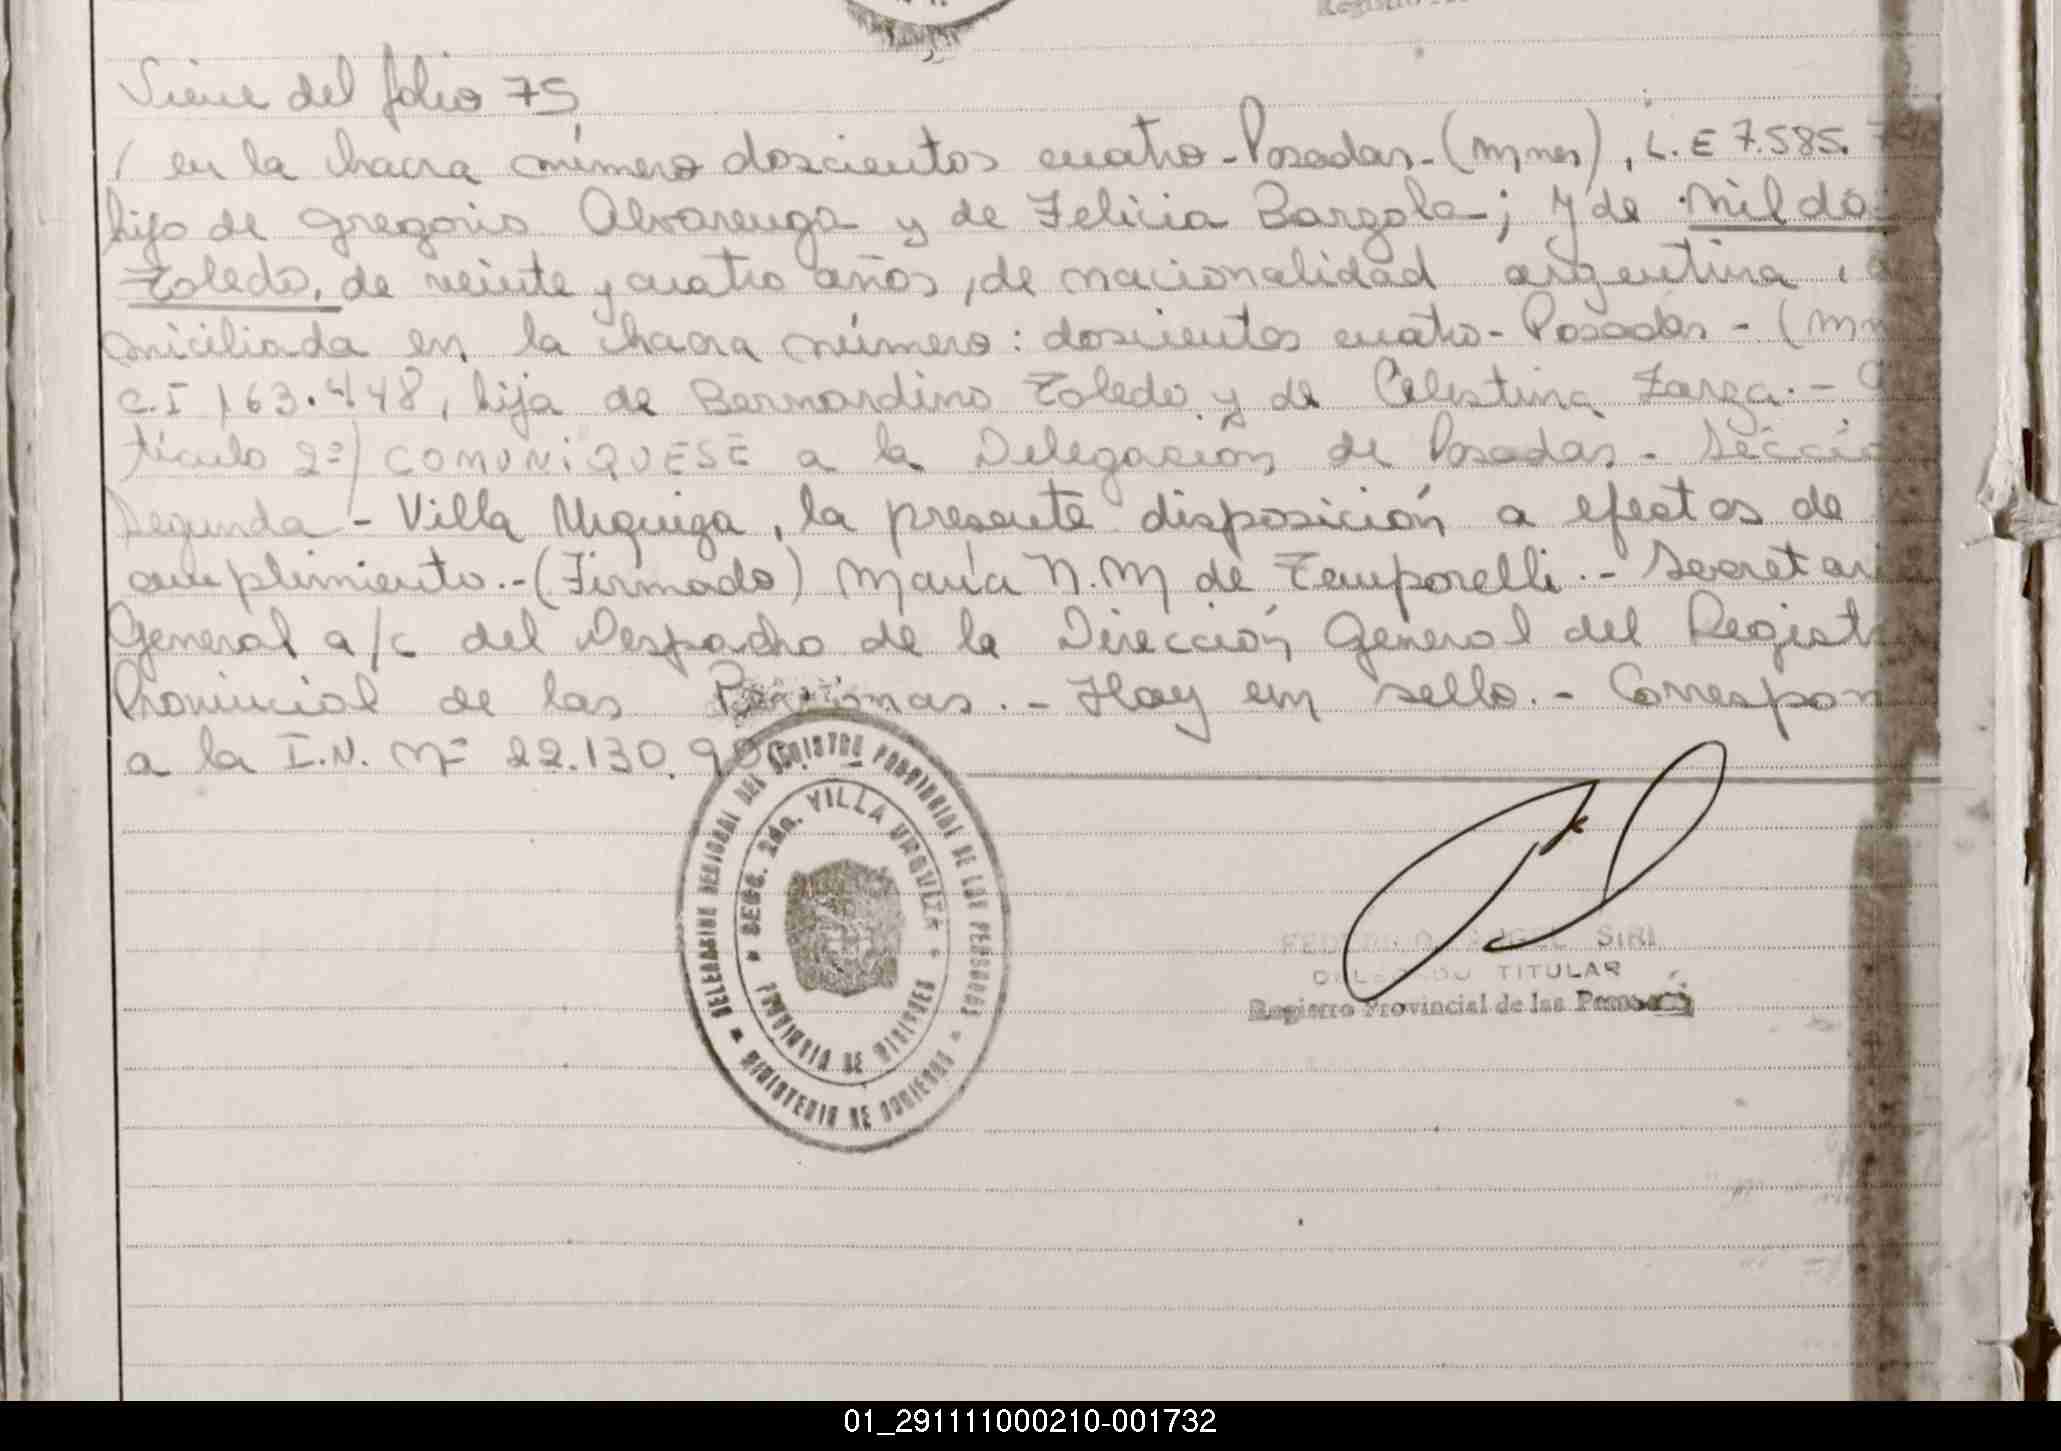 Viene del folio 75
/ en la chacra número doscientos cuatro - Posadas - (Mnes), L.E 7.585.
hijo de Gregorio Alvarenga y de Felicia Bargola -; y de Nilda
Toledo, de veinte y cuatro años, de nacionalidad argentina,
miciliada en la chacra número: doscientos cuatro - Posadas - (Mn
C.I 163.448, hija de Bernardino Toledo y de Celestina Zarza. -
tículo 2º) COMUNIQUESE a la Delegación de Posadas - Secció
Segunda - Villa Urquiza, la presente disposición a efectos de
cumplimiento. - (Firmado) María N.M de Temporelli. - Secretari
General a/c del Despacho de la Dirección General del Registr
Provincial de las Personas. - Hay un sello. - Correspon
a la I.N. Nº 22.130.9
DELEGACION REGIONAL DEL REGISTRO PROVINCIAL DE LAS PERSONAS
SECC. 2da. VILLA URQUIZA
PROVINCIA DE MISIONES
MINISTERIO DE GOBIERNO
SIRI
DELEGADO TITULAR
Registro Provincial de las Personas
01_291111000210-001732